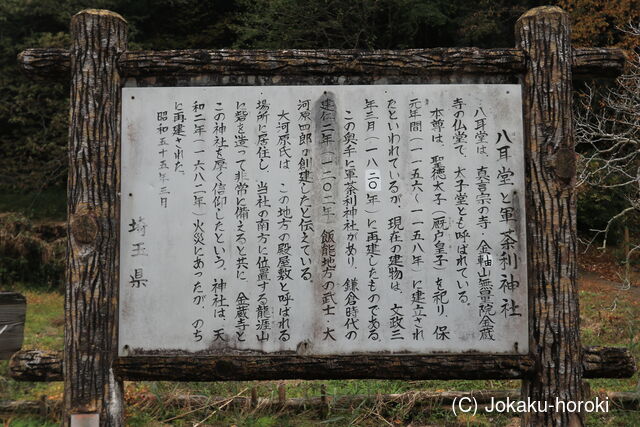 八耳堂と軍茶利神社
八耳堂は、真言宗の寺・金軸山無量院金蔵
寺の仏堂で、太子堂とも呼ばれている。
本尊は、聖徳太子(厩戸皇子)を祀り、保
元年間(一一五六～一一五八年)に建立され
たといわれているが、現在の建物は、文政三
年三月(一八二〇年)に再建したものである。
この奥手に軍茶利神社があり、鎌倉時代の
建仁二年(一二〇二年)飯能地方の武士、大
河原四郎が創建したと伝えている。
大河原氏は、この地方の殿屋敷と呼ばれる
場所に居住し、当社の南方に位置する龍涯山
に砦を造って非常に備えると共に、金蔵寺と
この神社を厚く信仰したという。神社は、天
和二年(一六八二年)火災にあったが、のち
に再建された。
昭和五十五年三月
埼玉県
(C) Jokaku-horoki